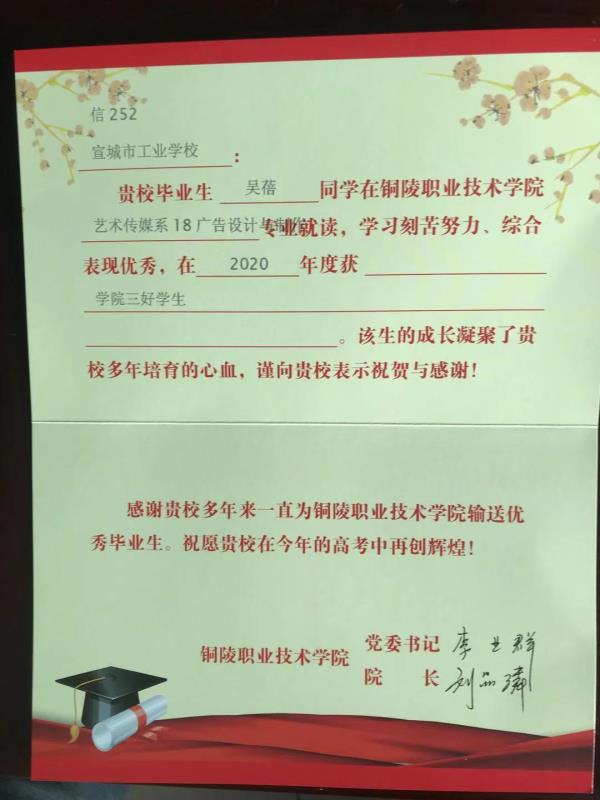 信 252
宣城市工业学校：
贵校毕业生 吴蓓 同学在铜陵职业技术学院
艺术传媒系 18 广告设计与制作 专业就读，学习刻苦努力、综合
表现优秀，在 2020 年度获
学院三好学生
。该生的成长凝聚了贵
校多年培育的心血，谨向贵校表示祝贺与感谢！
感谢贵校多年来一直为铜陵职业技术学院输送优
秀毕业生。祝愿贵校在今年的高考中再创辉煌！
铜陵职业技术学院 党委书记
院 长